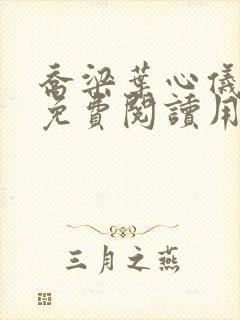 喬梁葉心儀
免費閱讀用
三月之燕